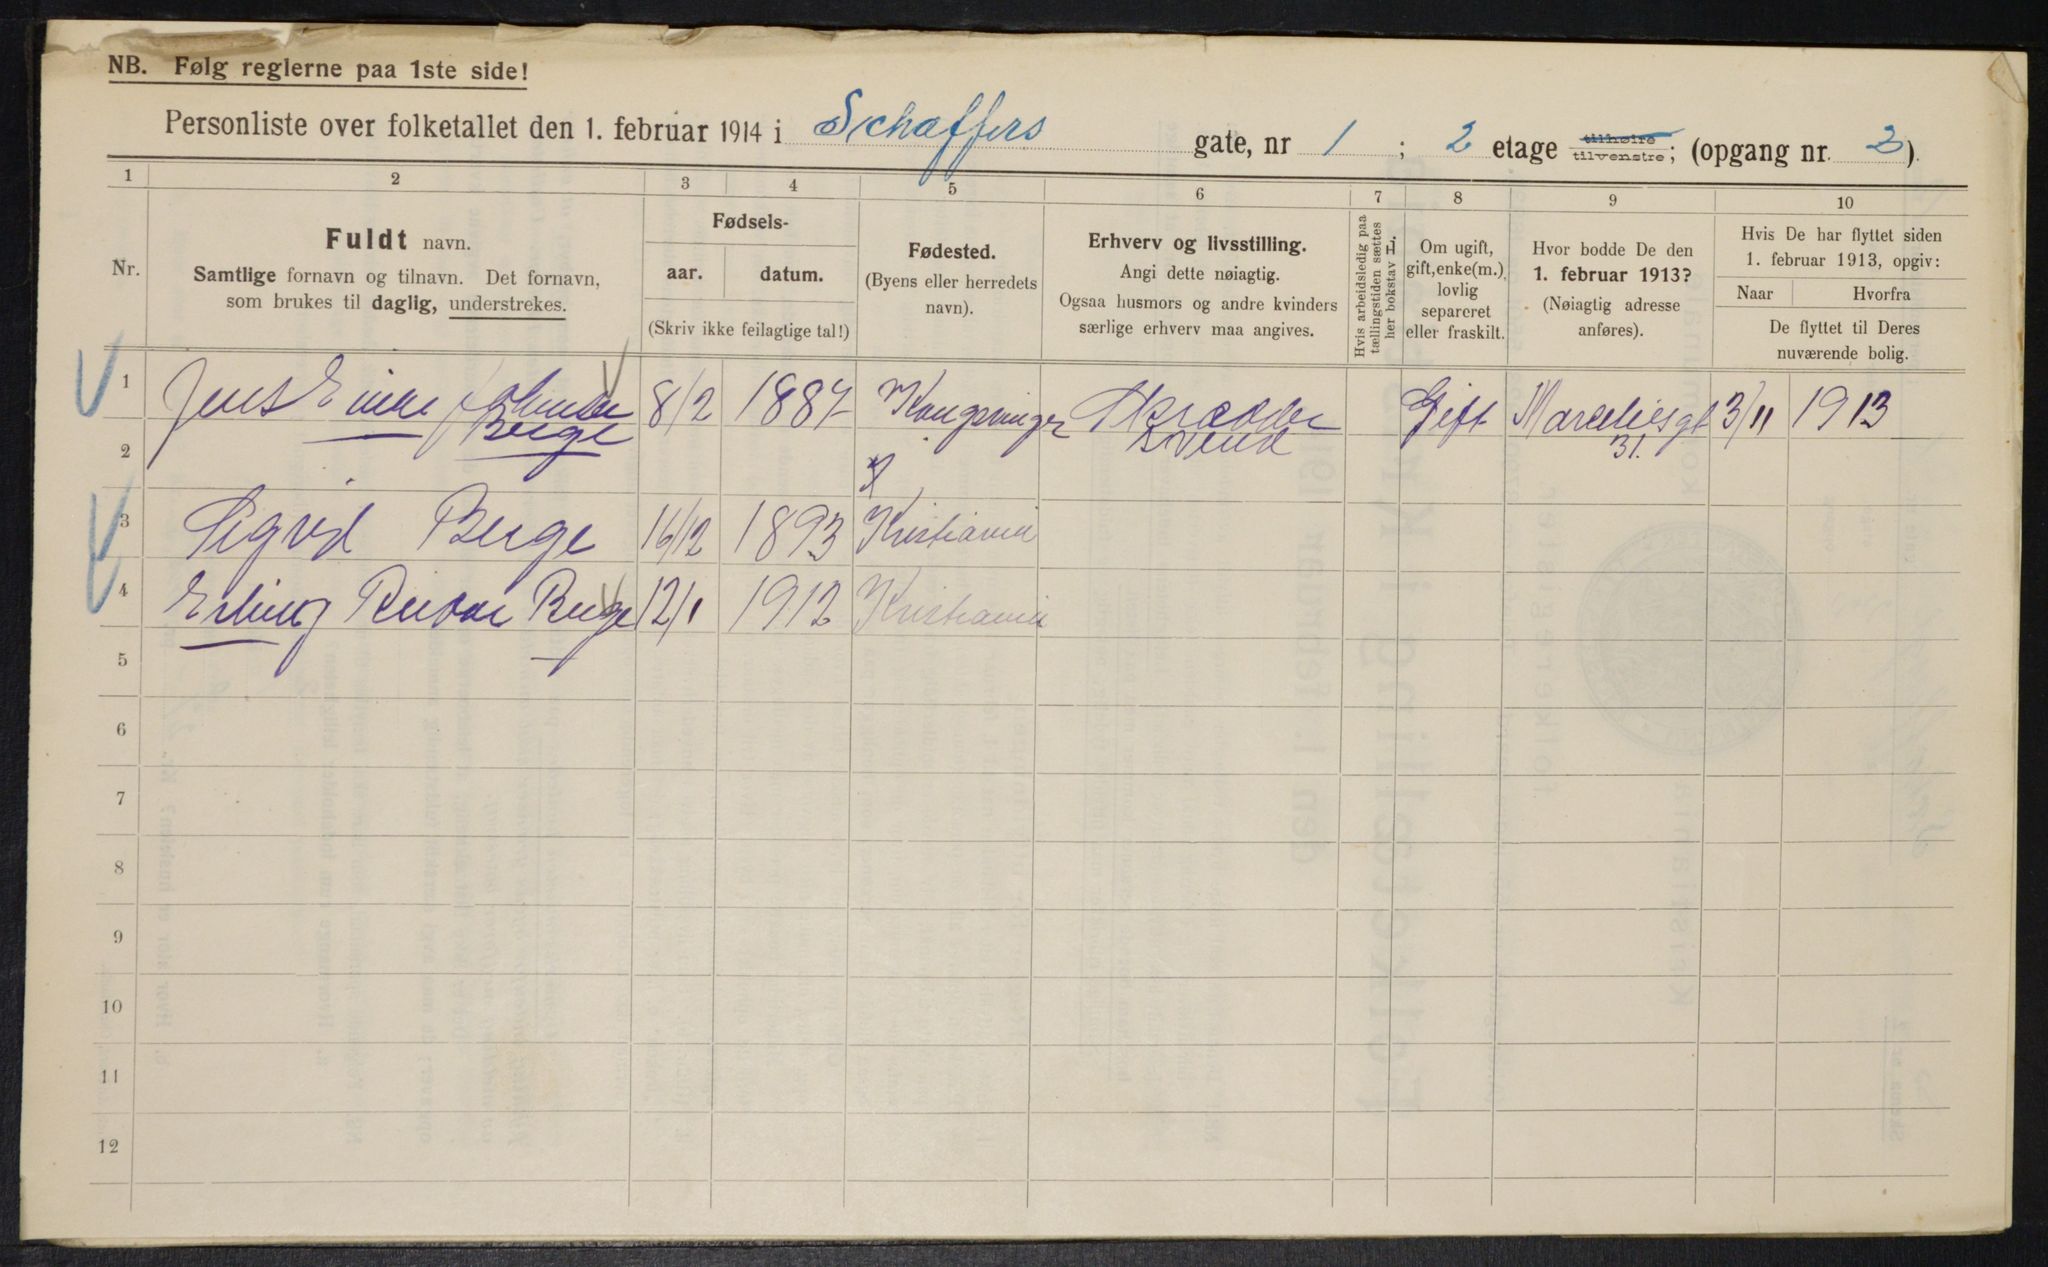 NB. Følg reglerne paa 1ste side!
Personliste over folketallet den 1. februar 1914 i Schaffers gate, nr 1 ; 2 etage tilhøire tilvenstre; (opgang nr. 2).
1 2 3 4 5 6 7 8 9 10
Nr.
Fuldt navn.
Samtlige fornavn og tilnavn. Det fornavn,
som brukes til daglig, understrekes.
Fødsels-
aar. datum.
(Skriv ikke feilagtige tal!)
Fødested.
(Byens eller herredets
navn).
Erhverv og livsstilling.
Angi dette nøiagtig.
Ogsaa husmors og andre kvinders
særlige erhverv maa angives.
Hvis arbeidsledig paa
tællingstiden sættes
her bokstav L.
Om ugift,
gift, enke(m.),
lovlig
separeret
eller fraskilt.
Hvor bodde De den
1. februar 1913?
(Nøiagtig adresse
anføres).
Hvis De har flyttet siden
1. februar 1913, opgiv:
Naar Hvorfra
De flyttet til Deres
nuværende bolig.
1 Jens Einar Johansen 8/2 1887 Kongsvinger Skrædder Gift Marceliesgt 3/11 1913
Berge Svend 31.
2
3 Sigrid Berge 16/12 1893 Kristiania
4 Erling Reidar Berge 12/1 1912 Kristiania
5
6
7
8
9
10
11
12